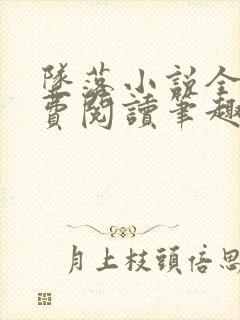 墜落小說全
費閱讀筆趣
月上枝頭倍思